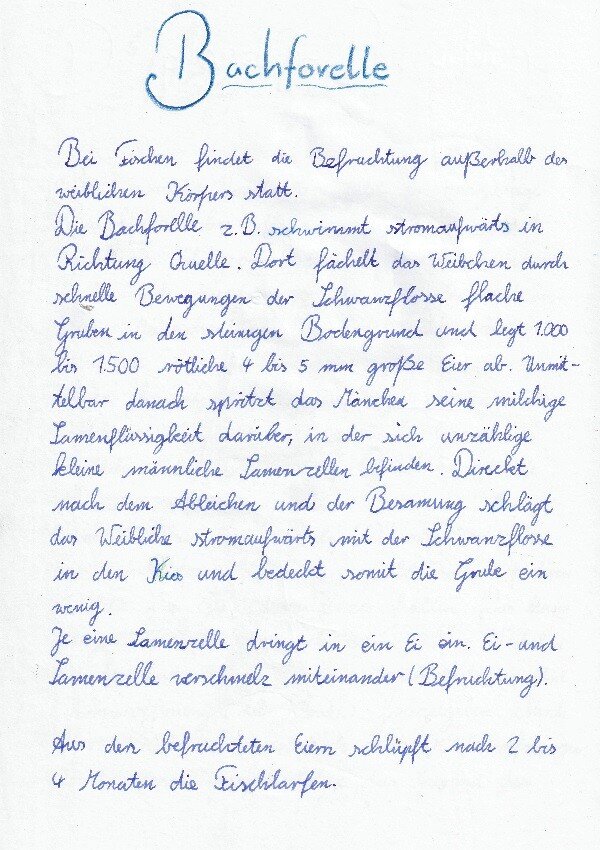 Bachforelle
Bei Fischen findet die Befruchtung außerhalb des
weiblichen Körpers statt.
Die Bachforelle z.B. schwimmt stromaufwärts in
Richtung Quelle. Dort fächelt das Weibchen durch
schnelle Bewegungen der Schwanzflosse flache
Gruben in den steinigen Bodengrund und legt 1.000
bis 1.500 rötliche 4 bis 5 mm große Eier ab. Unmit-
telbar danach spritzt das Mänchen seine milchige
Samenflüssigkeit darüber, in der sich unzählige
kleine männliche Samenzellen befinden. Direckt
nach dem Ableichen und der Besamung schlägt
das Weibliche stromaufwärts mit der Schwanzflosse
in den Kies und bedeckt somit die Grube ein
wenig.
Je eine Samenzelle dringt in ein Ei ein. Ei- und
Samenzelle verschmelz miteinander (Befruchtung).
Aus den befruchteten Eiern schlüpft nach 2 bis
4 Monaten die Fischlarfen.